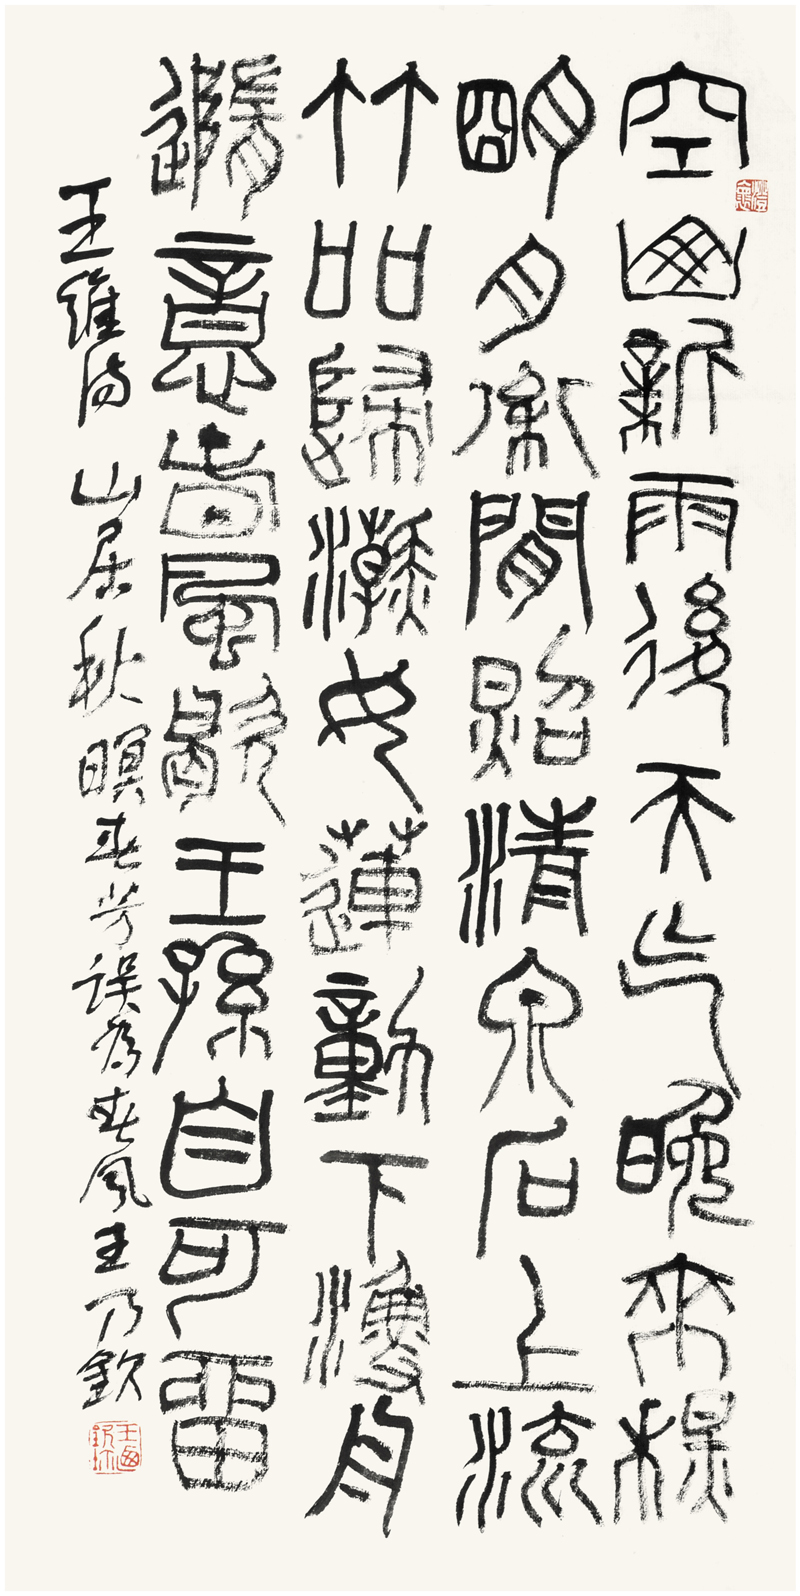 空山新雨後天气晚来秋
朙月松間照清泉石上流
竹吅歸澣女蓮動下漁舟
隨意春風歇王孫自可留
王維詩 山居秋暝 春芳误为春風 王乃欽